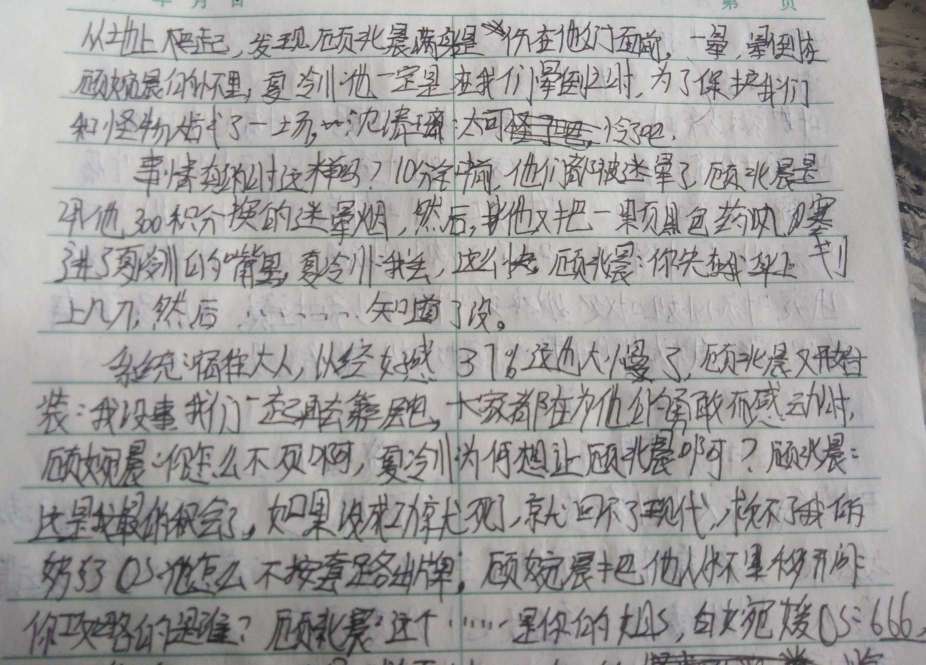 年 月 日 第 页
从地上爬起，发现顾北晨满身是伤在他们面前，一晕，晕倒在
顾婉晨的怀里，夏冷川：他一定是在我们晕倒之时，为了保护我们
和怪物战了一场。沈清璃：太可怜了吧.
事情真的时这样吗？10分钟前，他们都被迷晕了，顾北晨是
用他300积分换的迷晕烟，然后，他又把一颗黑色药丸塞
进了夏冷川的嘴里，夏冷川：我去，这么快，顾北晨：你先在我身上划
上几刀，然后…………知道了没。
系统：宿主大人，以经好感37%这也太慢了，顾北晨又开始
装：我没事我们一起再去，大家都在为他的勇敢而感动时，
顾婉晨：你怎么不砍啊，夏冷川为何想让顾北晨啊？顾北晨：
这是我最的机会了，如果没成功就死了，就回不了现代，找不了我的
OS：他怎么不按套路出牌，顾婉晨把他从怀里移开问
你攻略的是谁？顾北晨：这个……是你的，白婉媛OS：666，